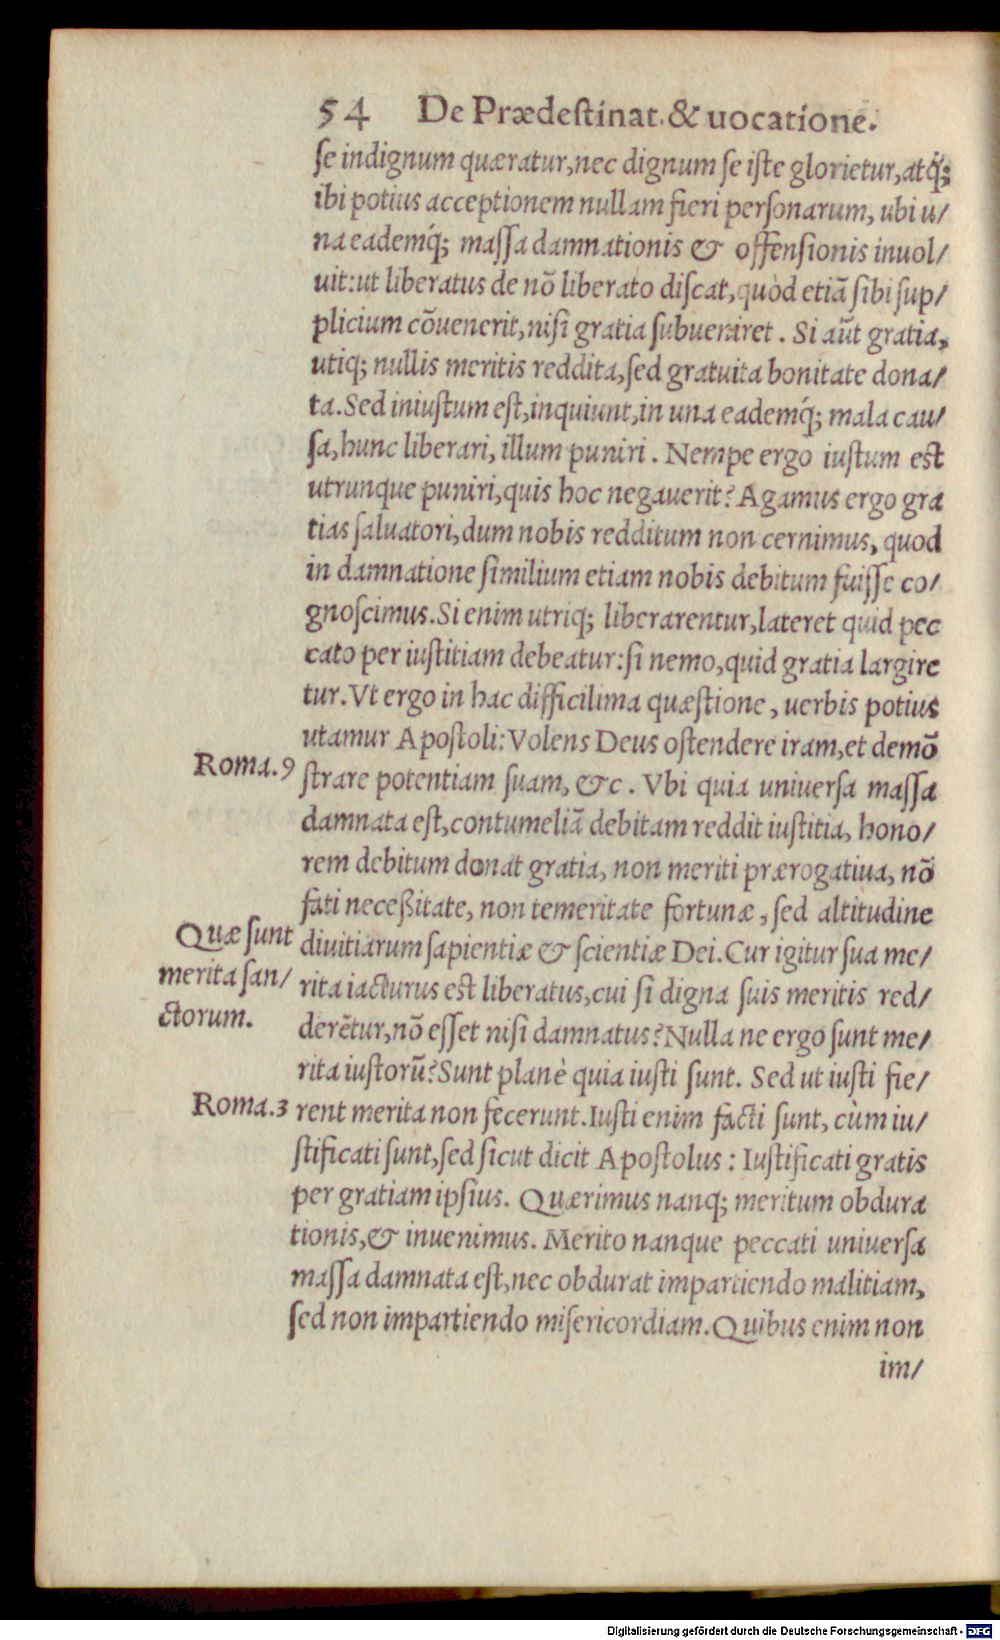 54 De Prædeſtinat. & uocatione.
ſe indignum quæratur, nec dignum ſe iſte glorietur, atq́;
ibi potius acceptionem nullam fieri perſonarum, ubi u/
na eademq́; maſſa damnationis & offenſionis inuol/
uit: ut liberatus de nõ liberato diſcat, quòd etiã ſibi ſup/
plicium cõuenerit, niſi gratia ſubueniret. Si aũt gratia,
utiq; nullis meritis reddita, ſed gratuita bonitate dona/
ta. Sed iniuſtum eſt, inquiunt, in una eademq́; mala cau/
ſa, hunc liberari, illum puniri. Nempe ergo iuſtum eſt
utrunque puniri, quis hoc negauerit? Agamus ergo gra
tias ſaluatori, dum nobis redditum non cernimus, quod
in damnatione ſimilium etiam nobis debitum fuiſſe co/
gnoſcimus. Si enim utriq; liberarentur, lateret quid pec
cato per iuſtitiam debeatur: ſi nemo, quid gratia largire
tur. Vt ergo in hac difficilima quæſtione, uerbis potius
utamur Apoſtoli: Volens Deus oſtendere iram, et demõ
Roma. 9 ſtrare potentiam ſuam, &c. Vbi quia uniuerſa maſſa
damnata eſt, contumeliã debitam reddit iuſtitia, hono/
rem debitum donat gratia, non meriti prærogatiua, nõ
fati neceßitate, non temeritate fortunæ, ſed altitudine
Quæ ſunt diuitiarum ſapientiæ & ſcientiæ Dei. Cur igitur ſua me/
merita ſan/ rita iacturus eſt liberatus, cui ſi digna ſuis meritis red/
ctorum. derẽtur, nõ eſſet niſi damnatus? Nulla ne ergo ſunt me/
rita iuſtorũ? Sunt planè quia iuſti ſunt. Sed ut iuſti fie/
Roma. 3 rent merita non fecerunt. Iuſti enim facti ſunt, cùm iu/
ſtificati ſunt, ſed ſicut dicit Apoſtolus: Iuſtificati gratis
per gratiam ipſius. Quærimus nanq; meritum obdura
tionis, & inuenimus. Merito nanque peccati uniuerſa
maſſa damnata eſt, nec obdurat impartiendo malitiam,
ſed non impartiendo miſericordiam. Quibus enim non
im/
Digitalisierung gefördert durch die Deutsche Forschungsgemeinschaft - DFG